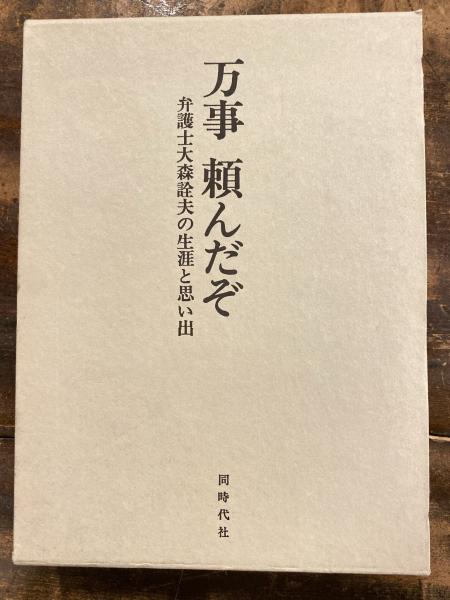 万事 頼んだぞ
弁護士大森詮夫の生涯と思い出
同時代社